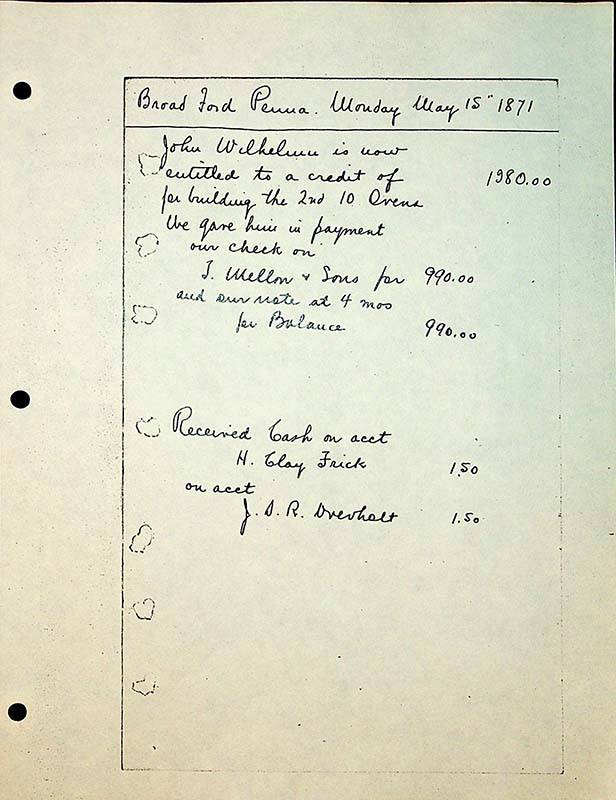 Broad Ford Penna. Monday May 15" 1871
John Wilhelm is now
entitled to a credit of 1980.00
for building the 2nd 10 Ovens
We gave him in payment
our check on
T. Mellon & Sons for 990.00
and our note at 4 mos
for Balance 990.00
Received Cash on acct
H. Clay Frick 1.50
on acct
J. S. R. Overholt 1.50